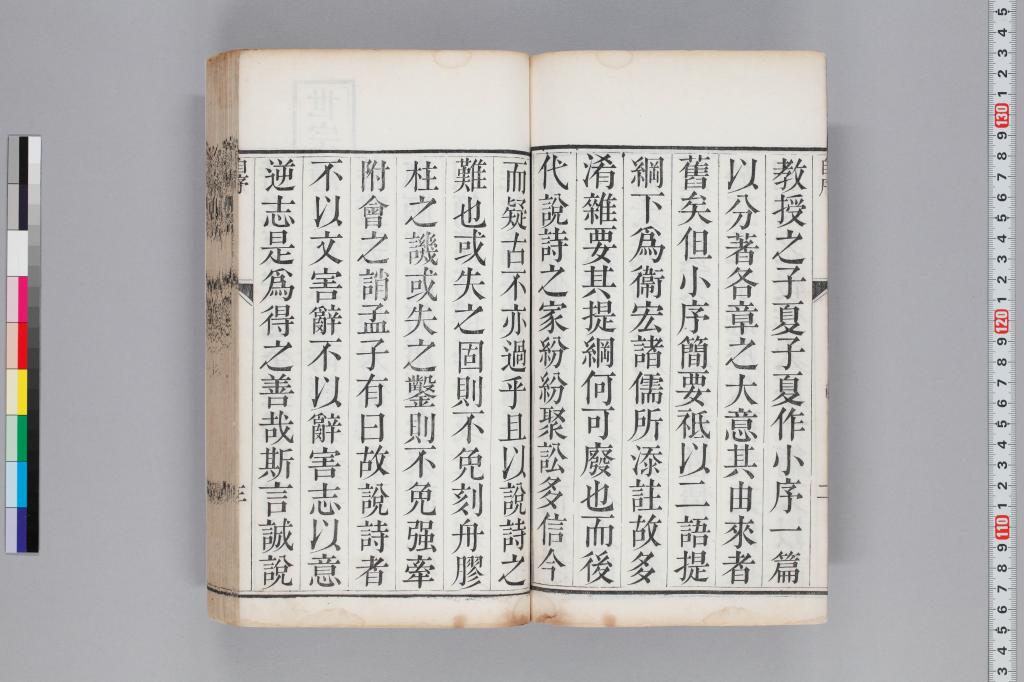 教授之子夏子夏作小序一篇
以分著各章之大意其由來者
舊矣但小序簡要祗以二語提
綱下爲衞宏諸儒所添註故多
淆雜要其提綱何可廢也而後
代說詩之家紛紛聚訟多信今
而疑古不亦過乎且以說詩之
難也或失之固則不免刻舟膠
柱之譏或失之鑿則不免强牽
附會之誚孟子有曰故說詩者
不以文害辭不以辭害志以意
逆志是爲得之善哉斯言誠說
自序
二
三
5
4
3
2
1
130
9
8
7
6
5
4
3
2
1
120
9
8
7
6
5
4
3
2
1
110
9
8
7
6
5
4
3